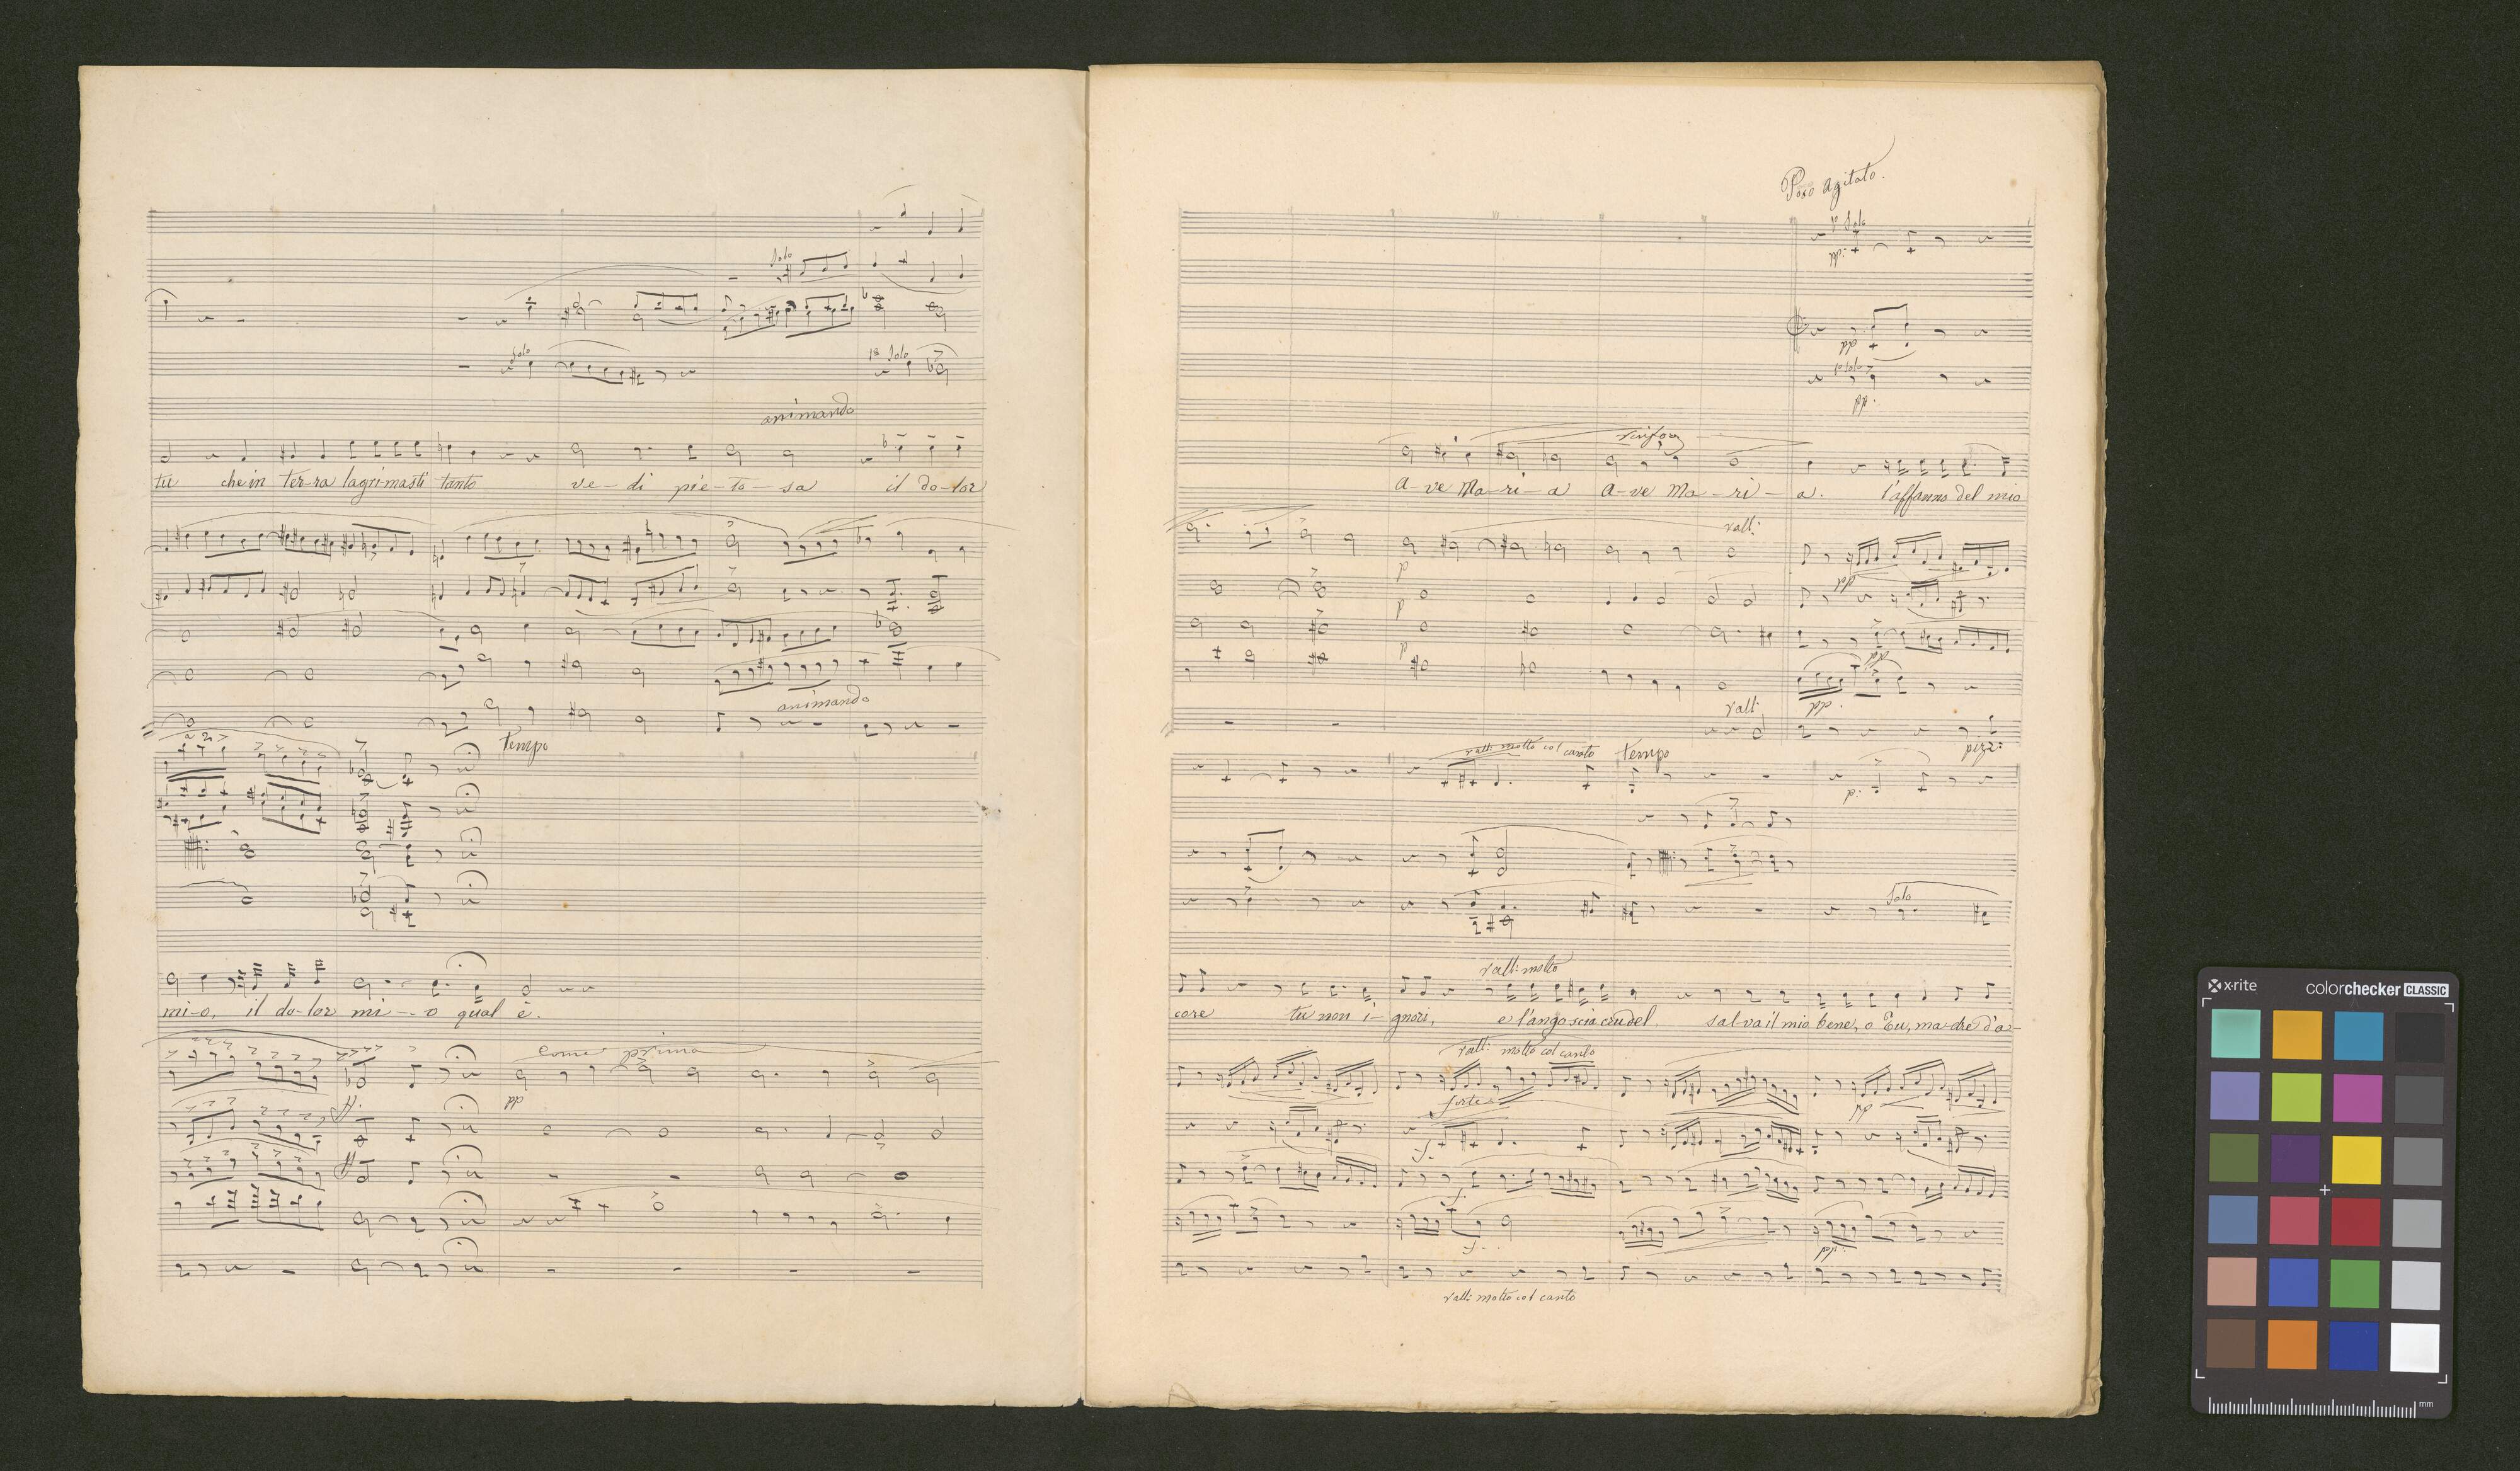 Solo
Solo
1º Solo
animando
tu che in ter-ra lagri-masti tanto ve-di pie-to-sa il do-lor
animando
a 2
Tempo
mi-o, il do-lor mi-o qual è.
come prima
ff.
pp
ff
Poco Agitato.
1º Solo
pp.
pp
1º Solo
pp.
rinforz
A-ve Ma-ri-a A-ve Ma-ri-a. l'affanno del mio
rall:
p
p
p
rall:
ppp.
pizz:
rall: molto col canto Tempo
p.
Solo
rall: molto
core tu non i-gnori, e l'angoscia crudel. salva il mio bene, o Tu, ma-dre d'a-
rall: molto col canto
forte
f.
f.
f.
rall: molto col canto
x-rite
colorchecker CLASSIC
mm